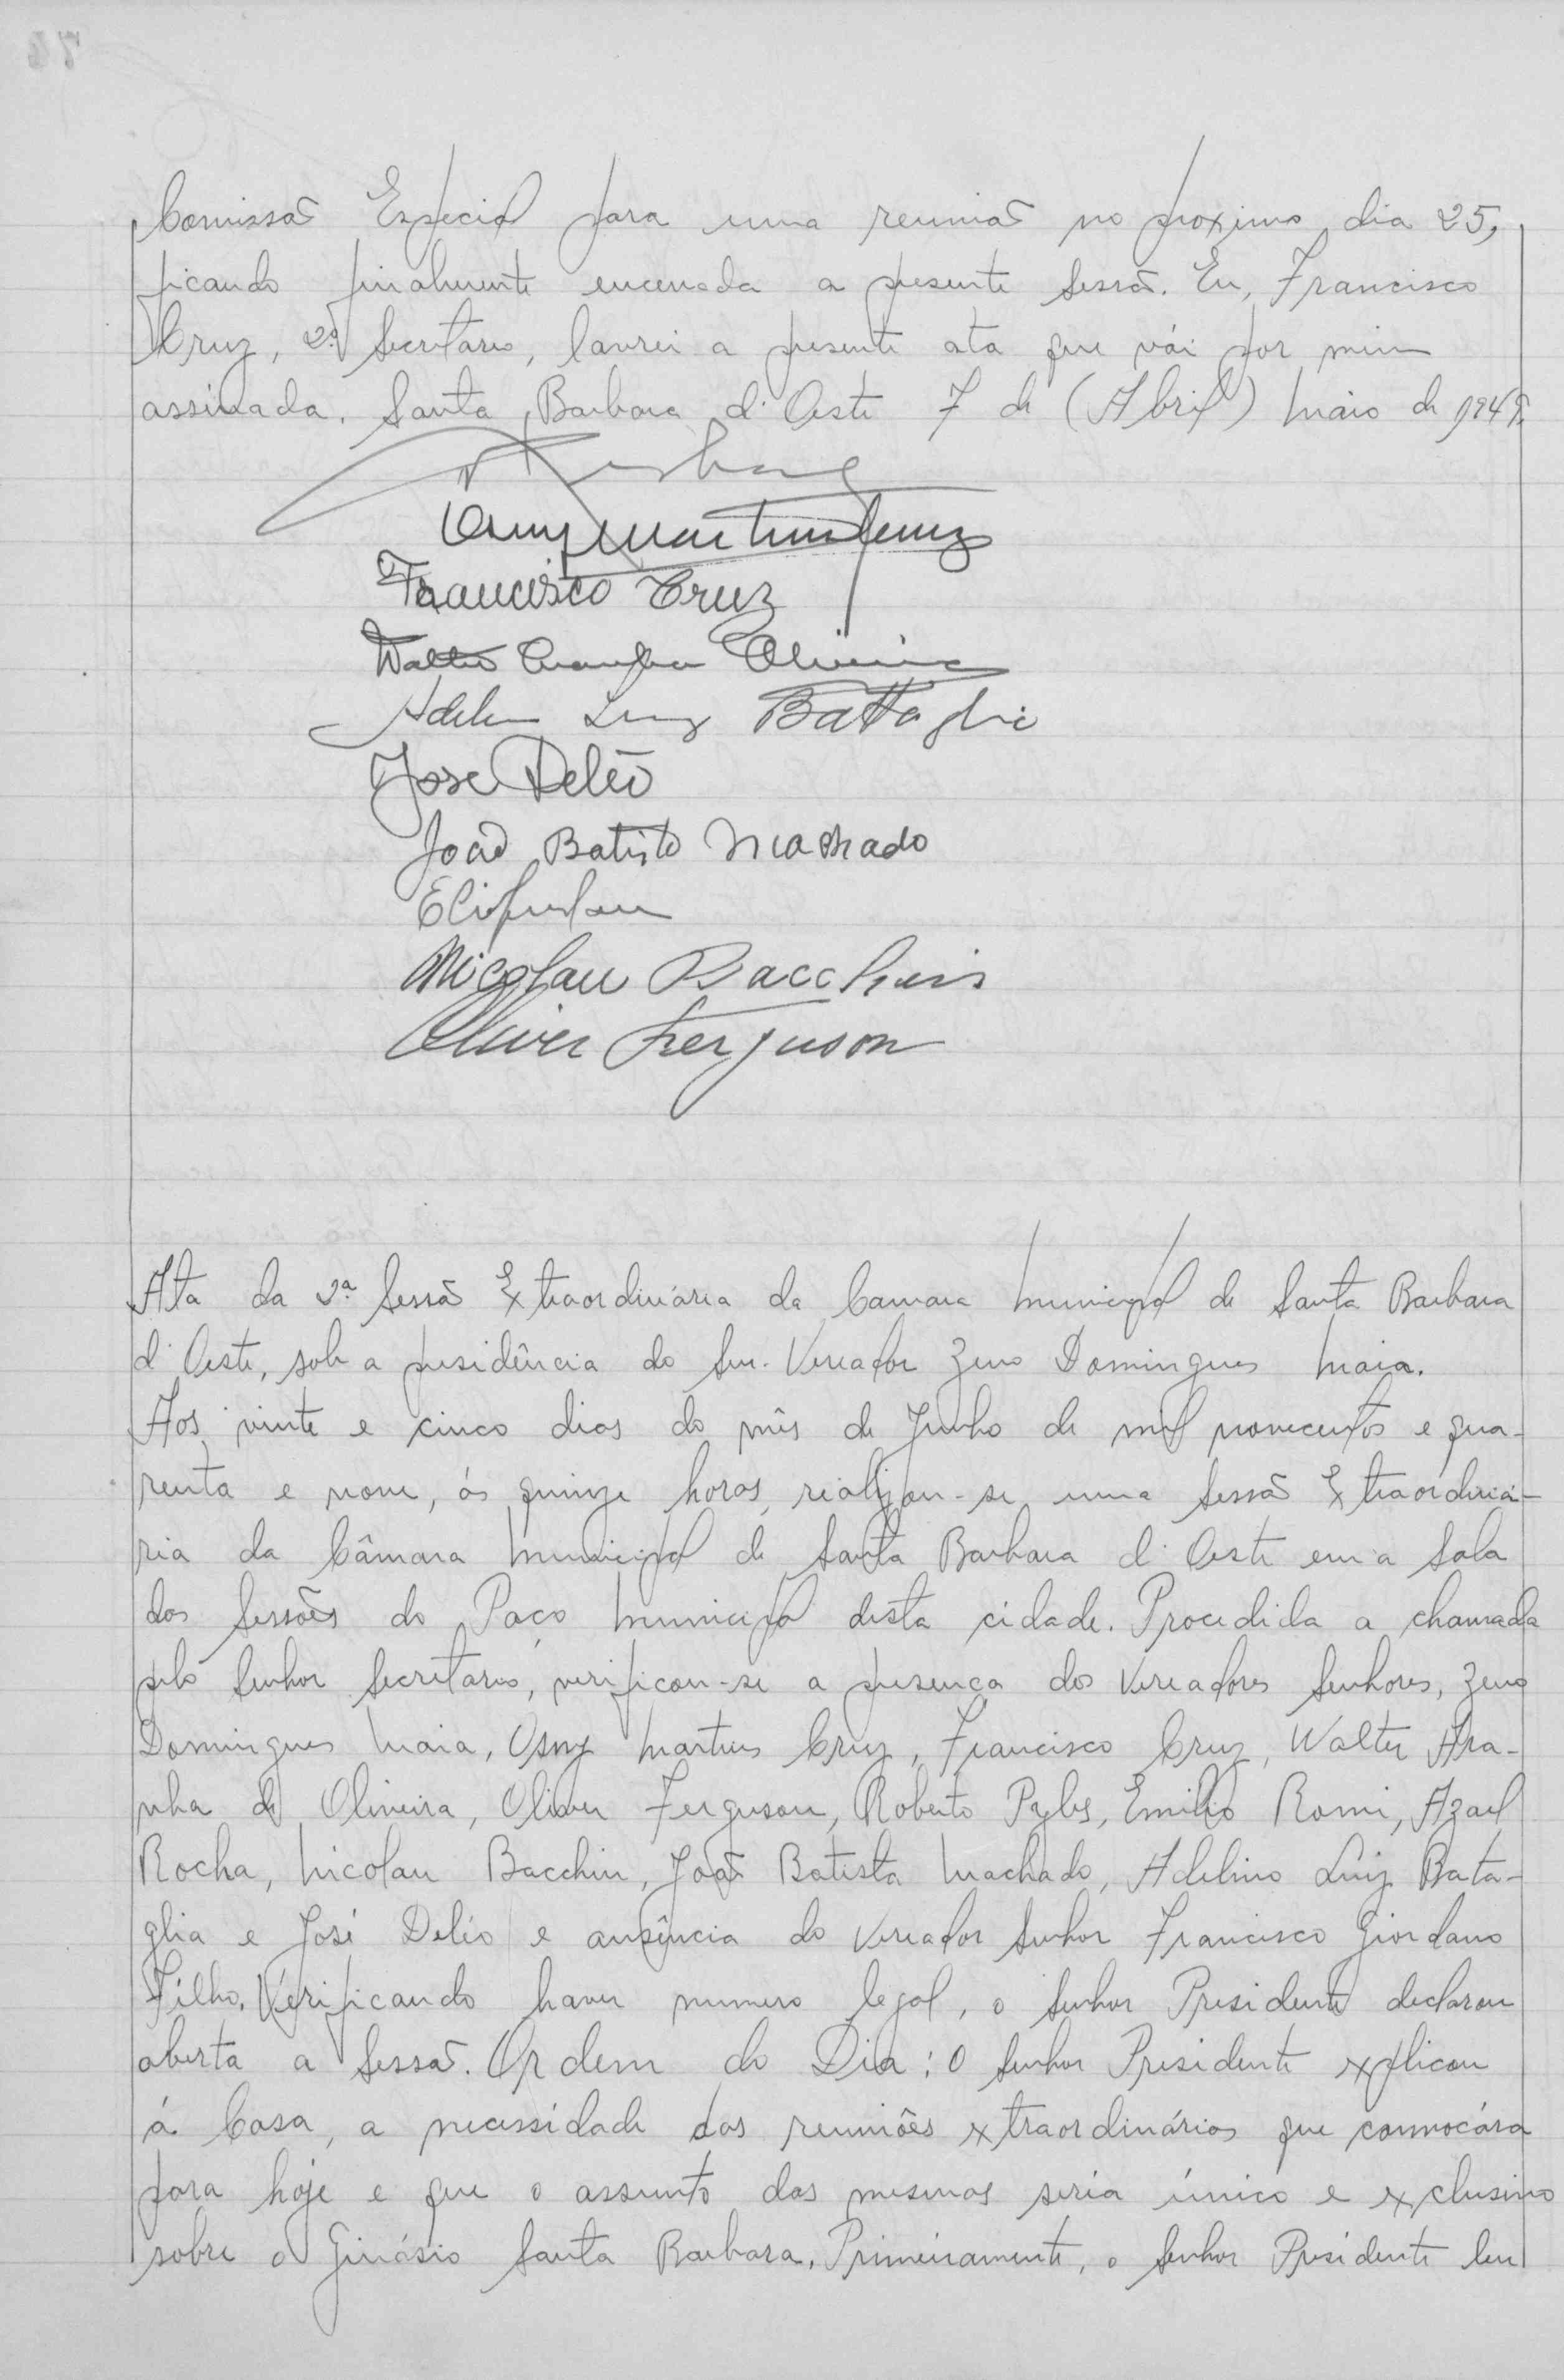 Comissão Especial para uma reunião no proximo dia 25,
ficando finalmente encerrada a presente sessão. Eu, Francisco
Cruz, 2º Secretario, lavrei a presente ata que vái por mim
assinada. Santa Barbara d'Oeste 7 de (Abril) Maio de 1949.
Osmy Martins Cruz
Francisco Cruz
Walter Aranha Oliveira
Adelino Luiz Battaglia
José Deléo
João Batista Machado
Nicolau Bacchin
Oliver Ferguson
Ata da 2ª Sessão Extraordinária da Camara Municipal de Santa Barbara
d'Oeste, sob a presidência do Snr. Vereador Zeno Domingues Maia.
Aos vinte e cinco dias do mês de Junho de mil novecentos e qua-
renta e nove, ás quinze horas, realizou-se uma Sessão Extraordiná-
ria da Câmara Municipal de Santa Barbara d'Oeste em a Sala
das Sessões do Paço Municipal desta cidade. Procedida a chamada
pelo Senhor Secretario, verificou-se a presença dos Vereadores Senhores, Zeno
Domingues Maia, Osmy Martins Cruz, Francisco Cruz, Walter Ara-
nha de Oliveira, Oliver Ferguson, Roberto Pyles, Emilio Romi, Azael
Rocha, Nicolau Bacchin, João Batista Machado, Adelino Luiz Bata-
glia e José Deléo e ausência do Vereador Senhor Francisco Giordano
Filho. Verificando haver numero legal, o Senhor Presidente declarou
aberta a Sessão. Ordem do Dia: O Senhor Presidente explicou
á Casa, a necessidade das reuniões extraordinárias que convocára
para hoje e que o assunto das mesmas seria único e exclusivo
sobre o Ginásio Santa Barbara. Primeiramente, o Senhor Presidente leu